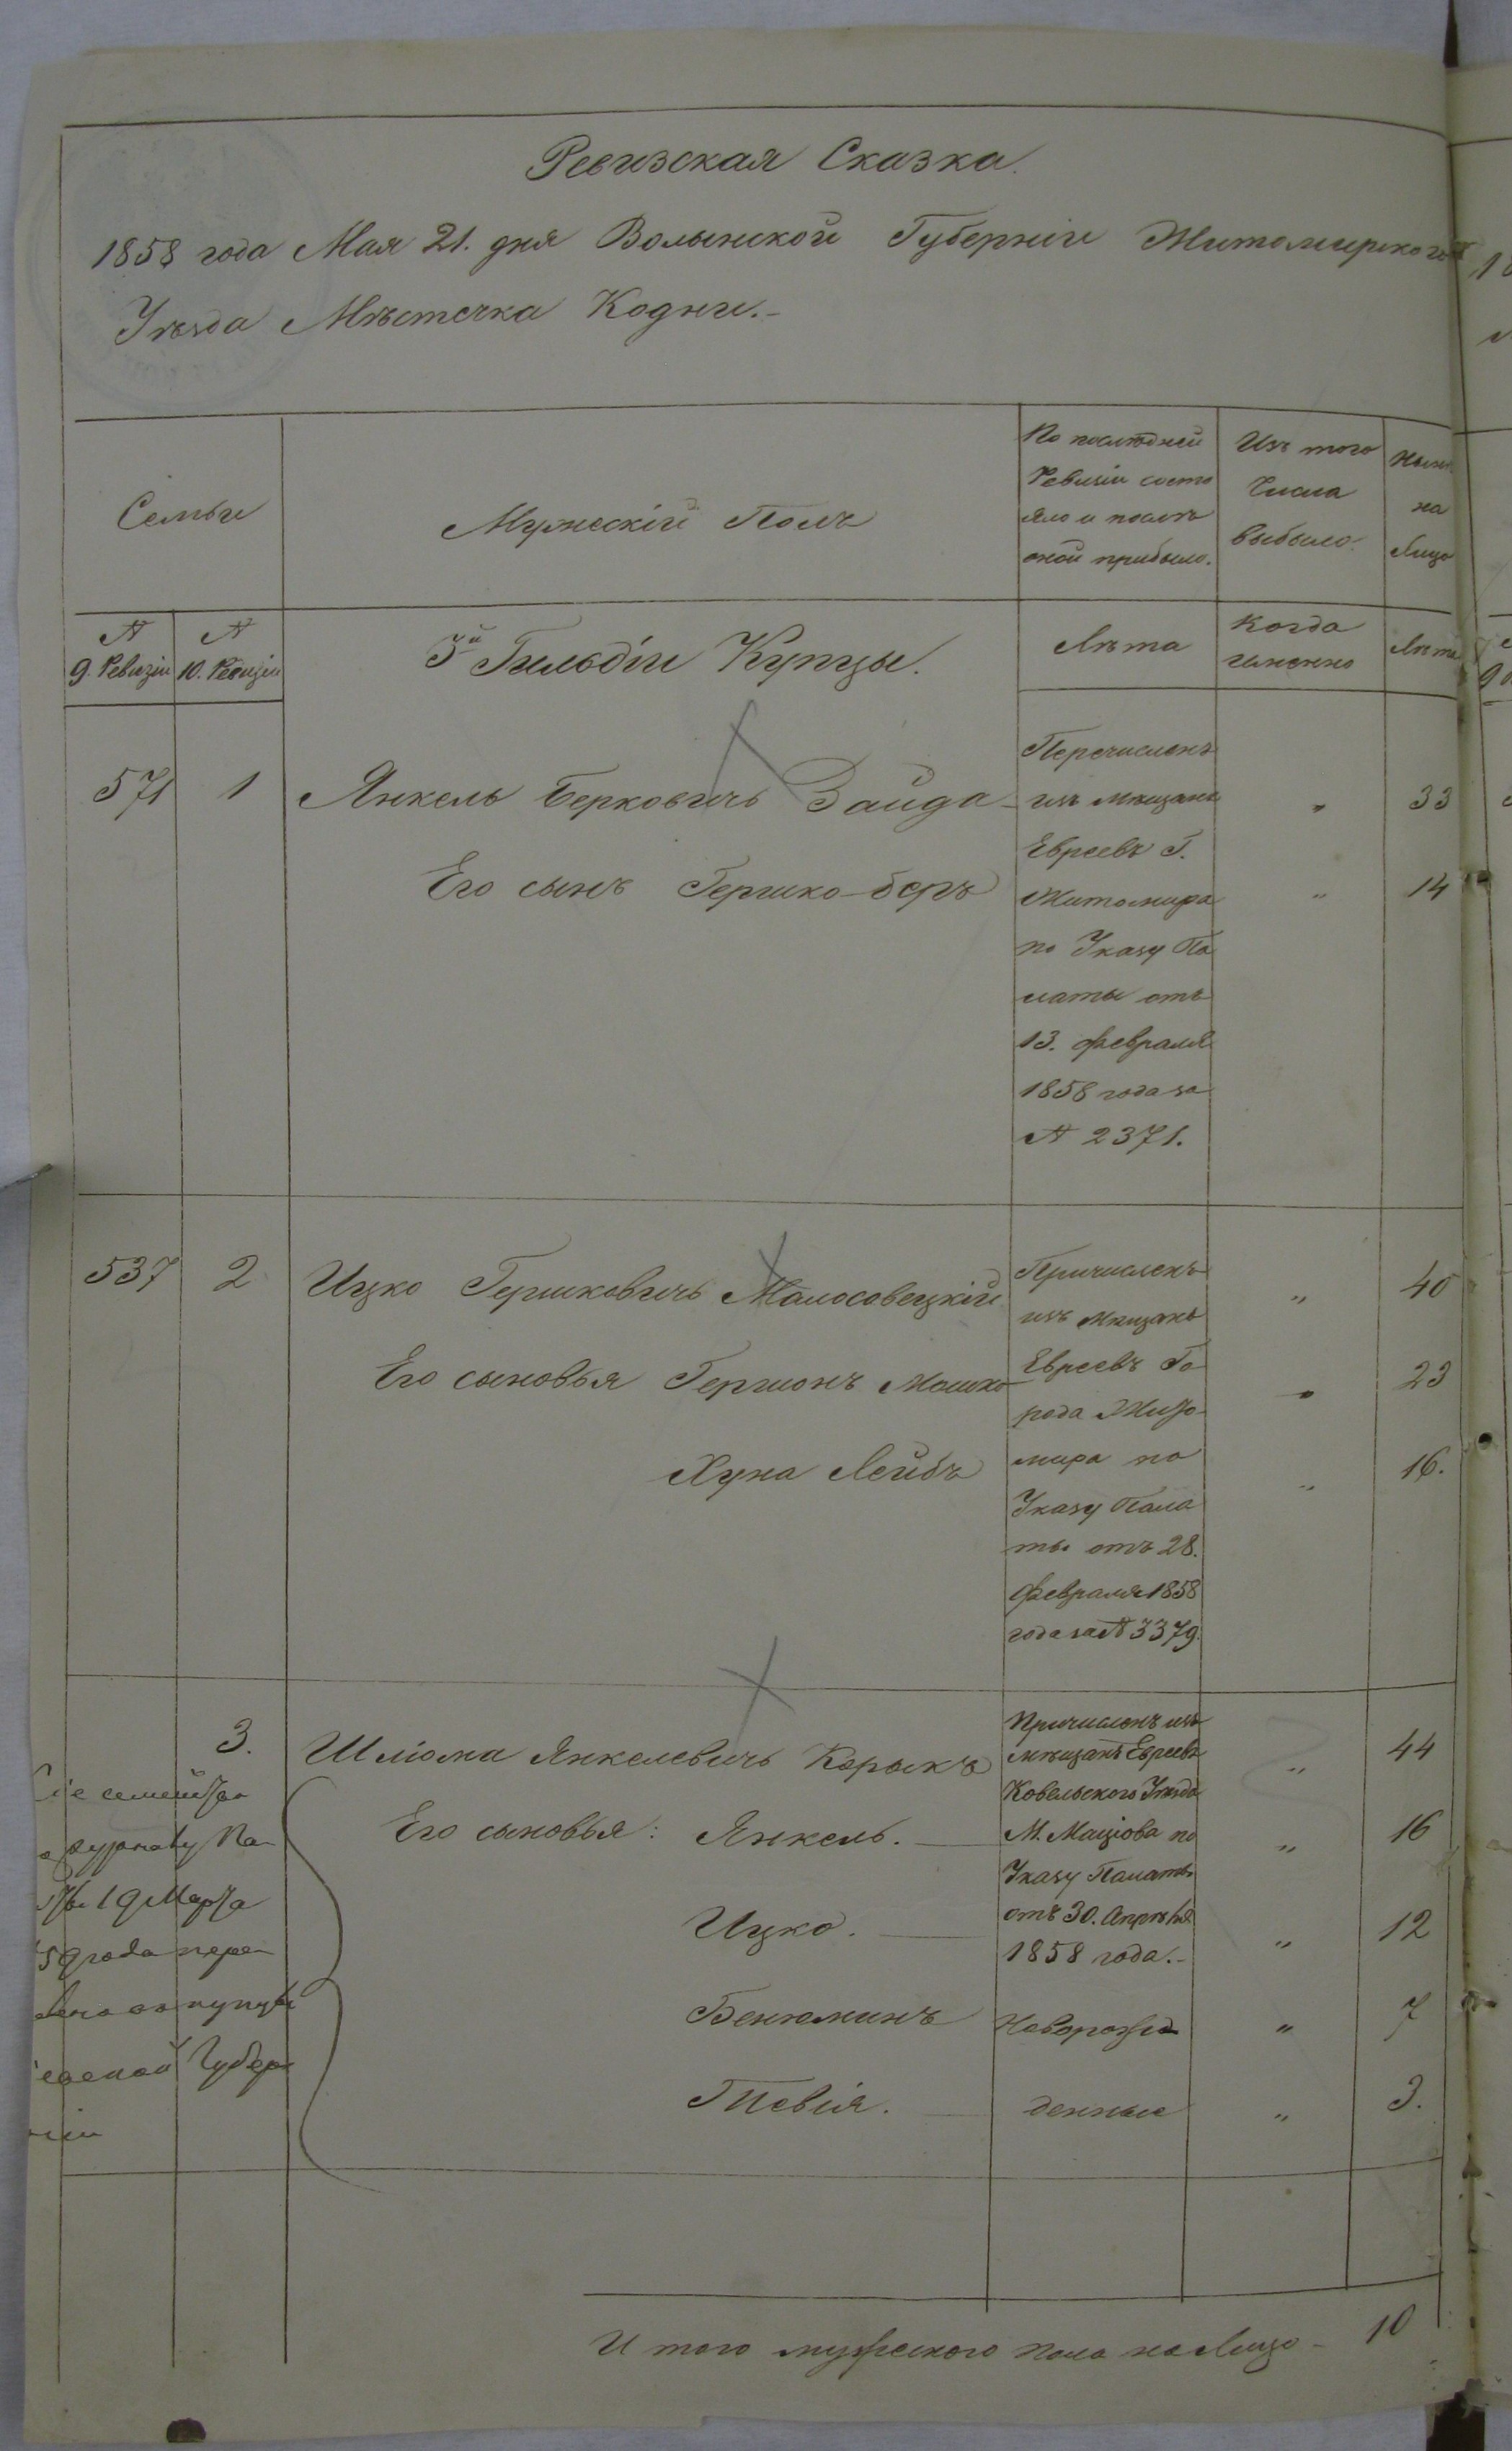 Ревизская Сказка.
1858 года Мая 21. дня Волынской Губерніи Житомирского
Уѣзда Мѣстечка Кодни.-
Семьи
Мужескій Полъ
По послѣдней
Ревизіи состо
яло и послѣ
оной прибыло.
Изъ того
Числа
выбыло
Нынѣ
на
Лицо
№
9. Ревизіи
№
10. Ревизіи
3й Гильдіи Купцы.
Лѣта
Когда
именно
Лѣта
571 1 Янкель Берковичъ Зайда 33
Его сынъ Гершко-беръ 14
Перечисленъ
изъ мѣщанъ
Евреевъ Г.
Житомира
по Указу Па
латы отъ
13. февраля
1858 года за
№ 2371.
537 2 Ицко Гершковичъ Малосовецкій „ 40
Его сыновья Гершонъ Мошко „ 23
Хуна Лейбъ „ 16.
Причисленъ
изъ мѣщанъ
Евреевъ Го
рода Жито-
мира по
Указу Пала
ты отъ 28.
февраля 1858
года за № 3379.
3. Шліома Янкелевичъ Корыкъ „ 44
Его сыновья: Янкель. „ 16
Ицко. „ 12
Бенюминъ „ 7
Тевія. „ 3.
Причисленъ изъ
мѣщанъ Евреевъ
Ковельского Уѣзда
М. Маціова по
Указу Палаты
отъ 30. Апрѣля
1858 года.-
Новорож
денные
семейство
журналу Па
19 Марта
59 года пере
купцы
Губер
ніи
И того мужеского пола на Лицо - 10